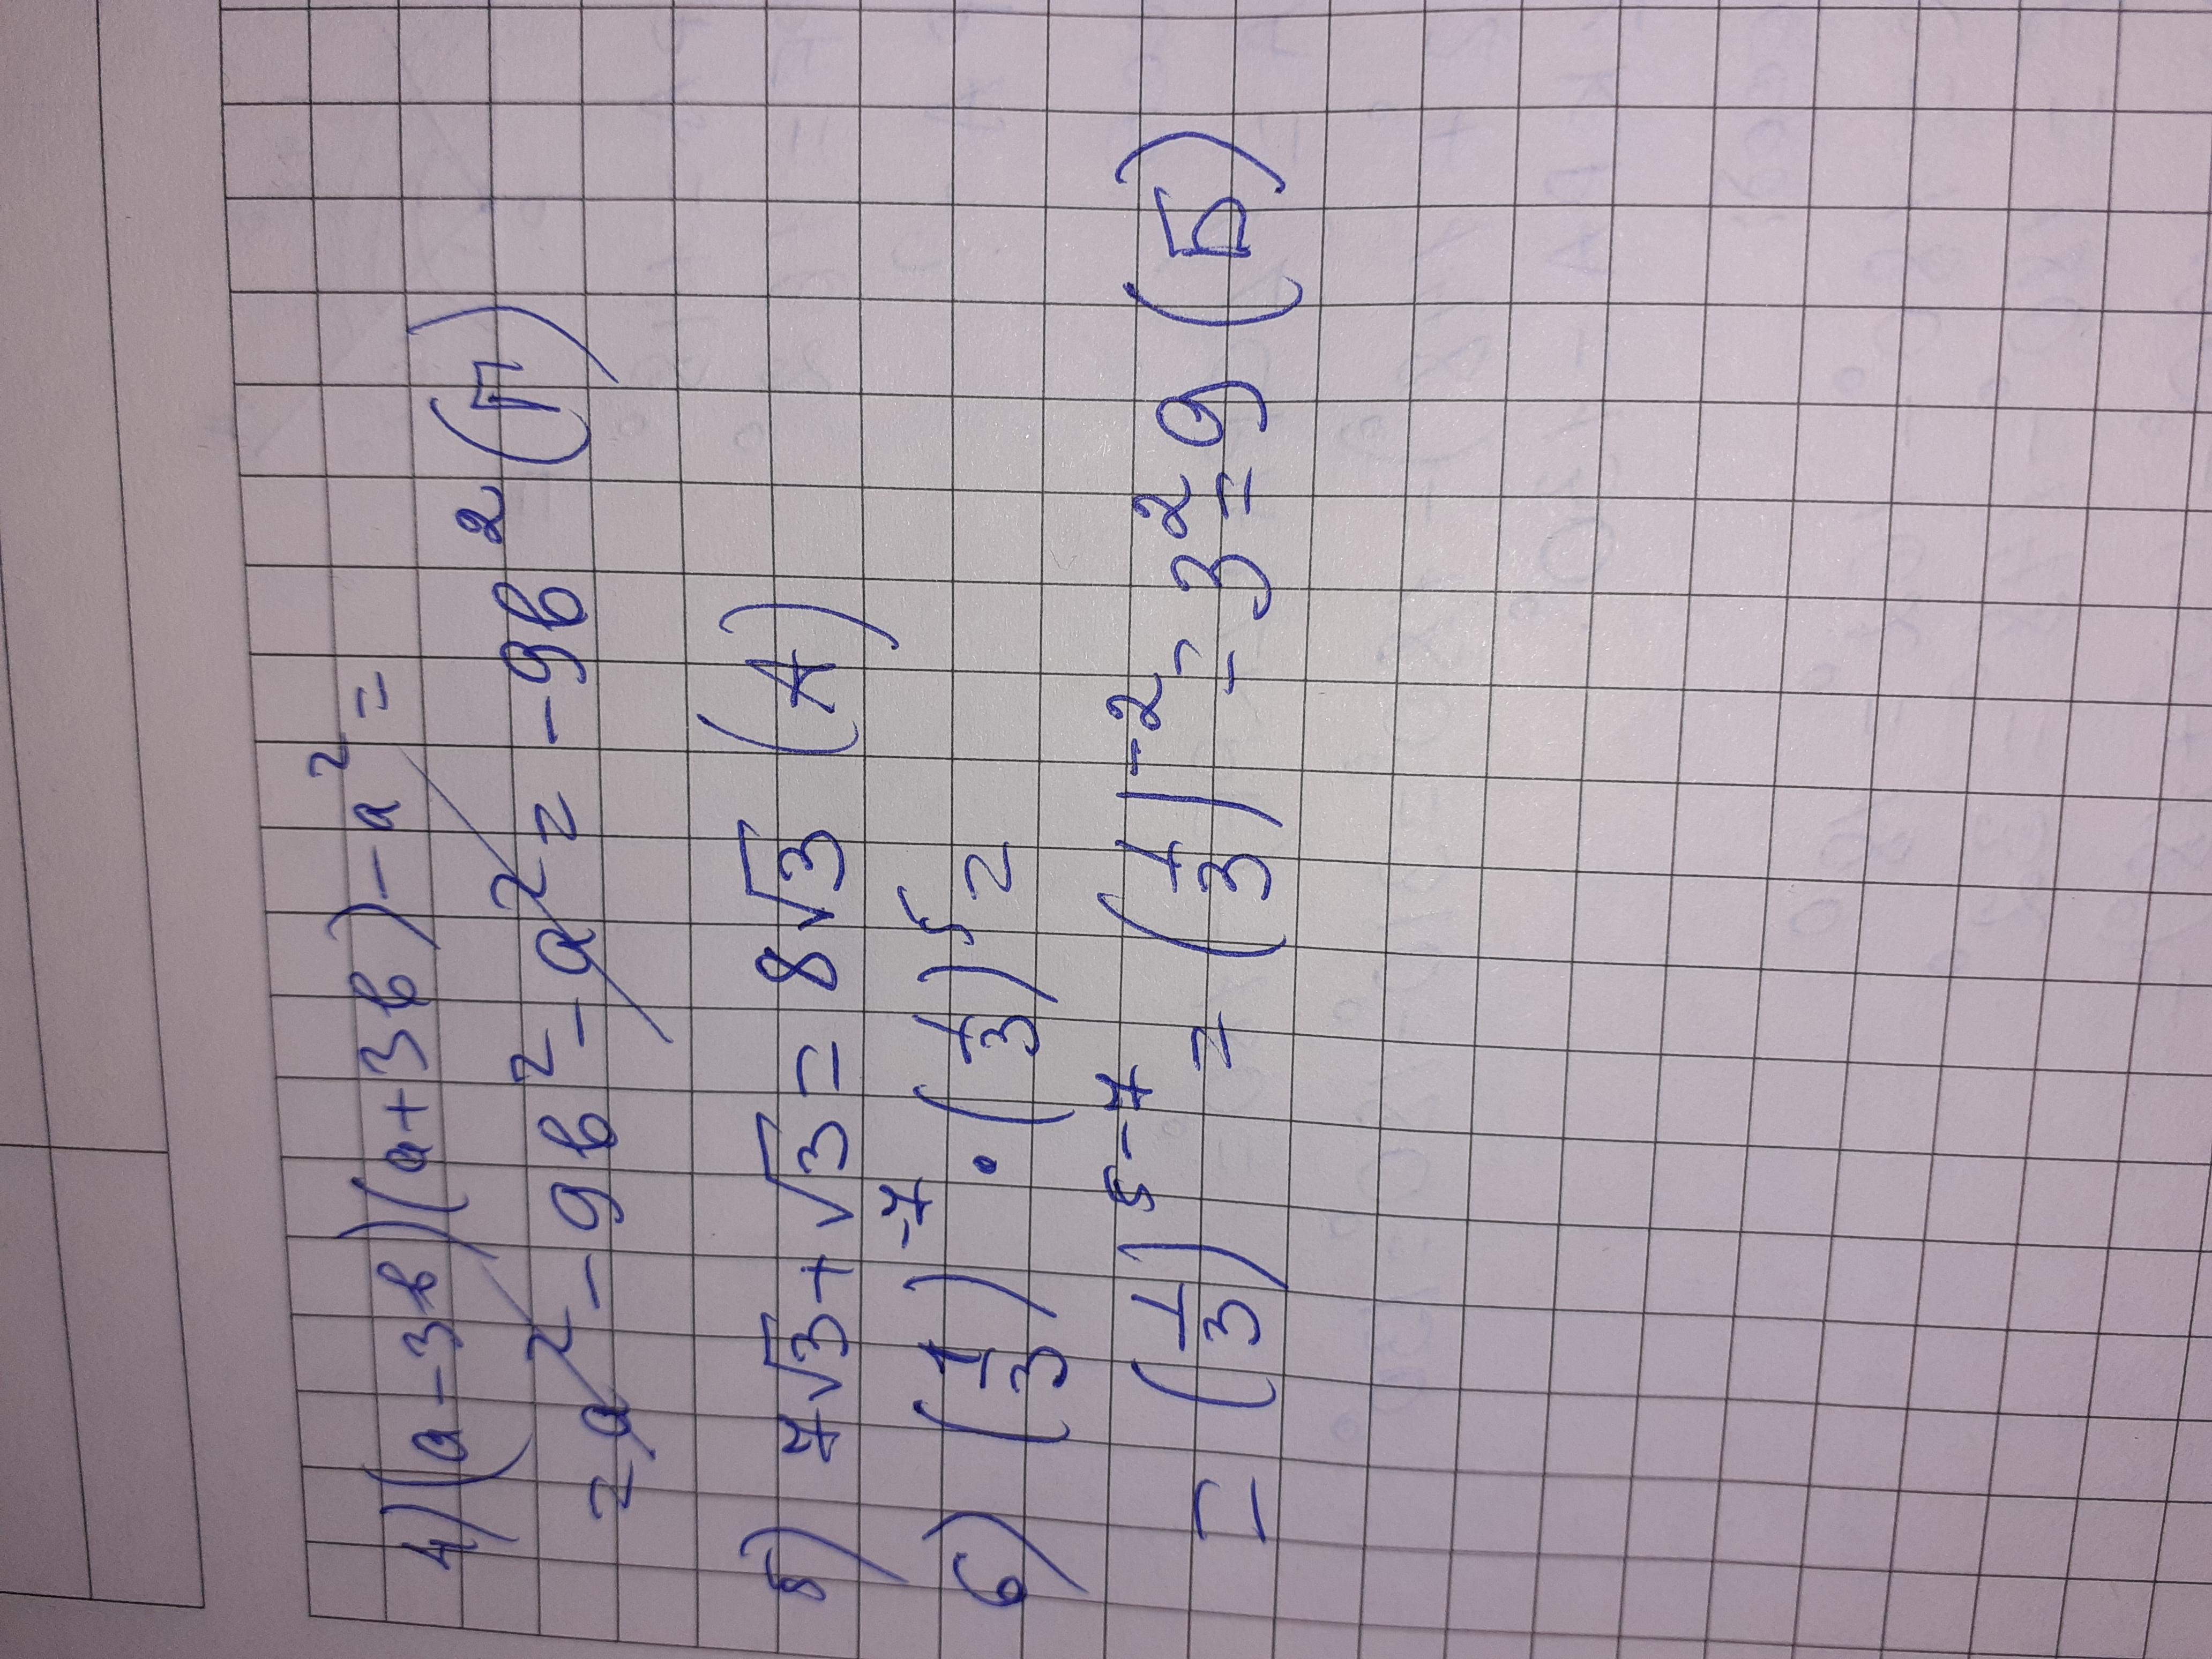 4) (a-3b)(a+3b)-a²=
=a²-9b²-a²=-9b² (П)
5) 7√3+√3=8√3 (А)
6) (1/3)⁻⁷·(1/3)⁵=
=(1/3)⁵⁻⁷=(1/3)⁻²=3²=9 (Б)